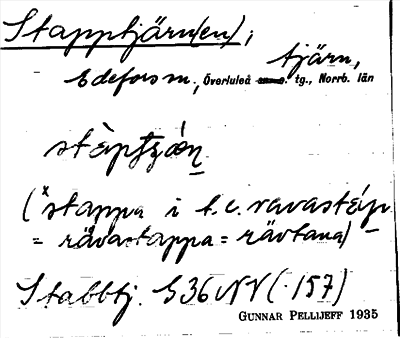 Stapptjärn(en),
tjärn,
Edefors sn, Överluleå tg., Norrb. län
(*stappa i t.e. ravastáp
= rävastappa = rävtana)
Stabbtj. G36NV (·157)
GUNNAR PELLIJEFF 1935